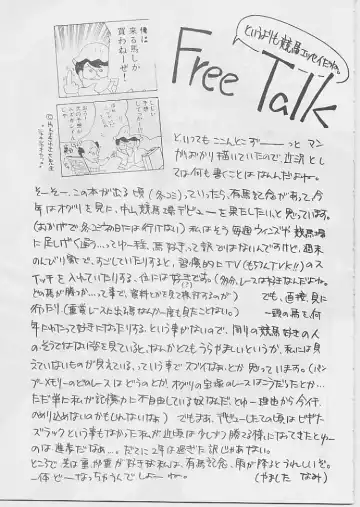 Free Talk
というよりも競馬エッセイだね。
俺は
来る馬しか
買わねーぜ!
といってもここんとこずーーっとマン
ガばかり描いていたので、近況とし
ては何も書くことはなんだよね。
そーそー、この本が出る頃(冬コミ)っていったら、有馬記念があって、今
年はオグリを見に、中山競馬場デビューを果たしたいと思っています。
(おかげで冬コミ の日は行けない)私はそう毎週ウィンズや競馬場
に足しげく通う…って中一程、馬好きって訳ではないんですけど、週末
のんびり家で、ごろごろしていたりすると、習慣的にTV(もちろんTVK!!)のス
イッチを入れていたりする、位には好きです。(多分、レースは好きなんだよね。
どの馬が勝つか…って事で、資料とかを見て検討するのが) でも、直接見に
行ったり、(重賞レースに出る馬なんか一度も見たことない) 一頭の馬を何
年もわたって好きにはなったりする、という事がないので、周りの競馬好きの人
のそうではない姿を見ていると、なんかとてもうらやましいというか、私には見
えていないものが見えている、っていう事でスゴイなぁ、とか思っています。(バン
ブーメモリーのどのレースはどうのとか、オグリの宝塚のレースはこうだったとか…
ただ単に私が記憶力に不自由している奴なんだ、とゆー理由から今イチ、
のめり込めないのかもしれないなぁ) でもまあ、デビューしたての頃はビギナ
ズラックという事もなかった私が近頃は少しづつ勝てる様になってきたとゆー
のは進歩だなぁ…。だてに2年は過ぎた訳じゃあない。
ところで、実は重馬場が好きな私は、有馬記念、雨が降るとうれしいぞ。
一体どーなっちゃうんでしょーね。 (やました なみ)